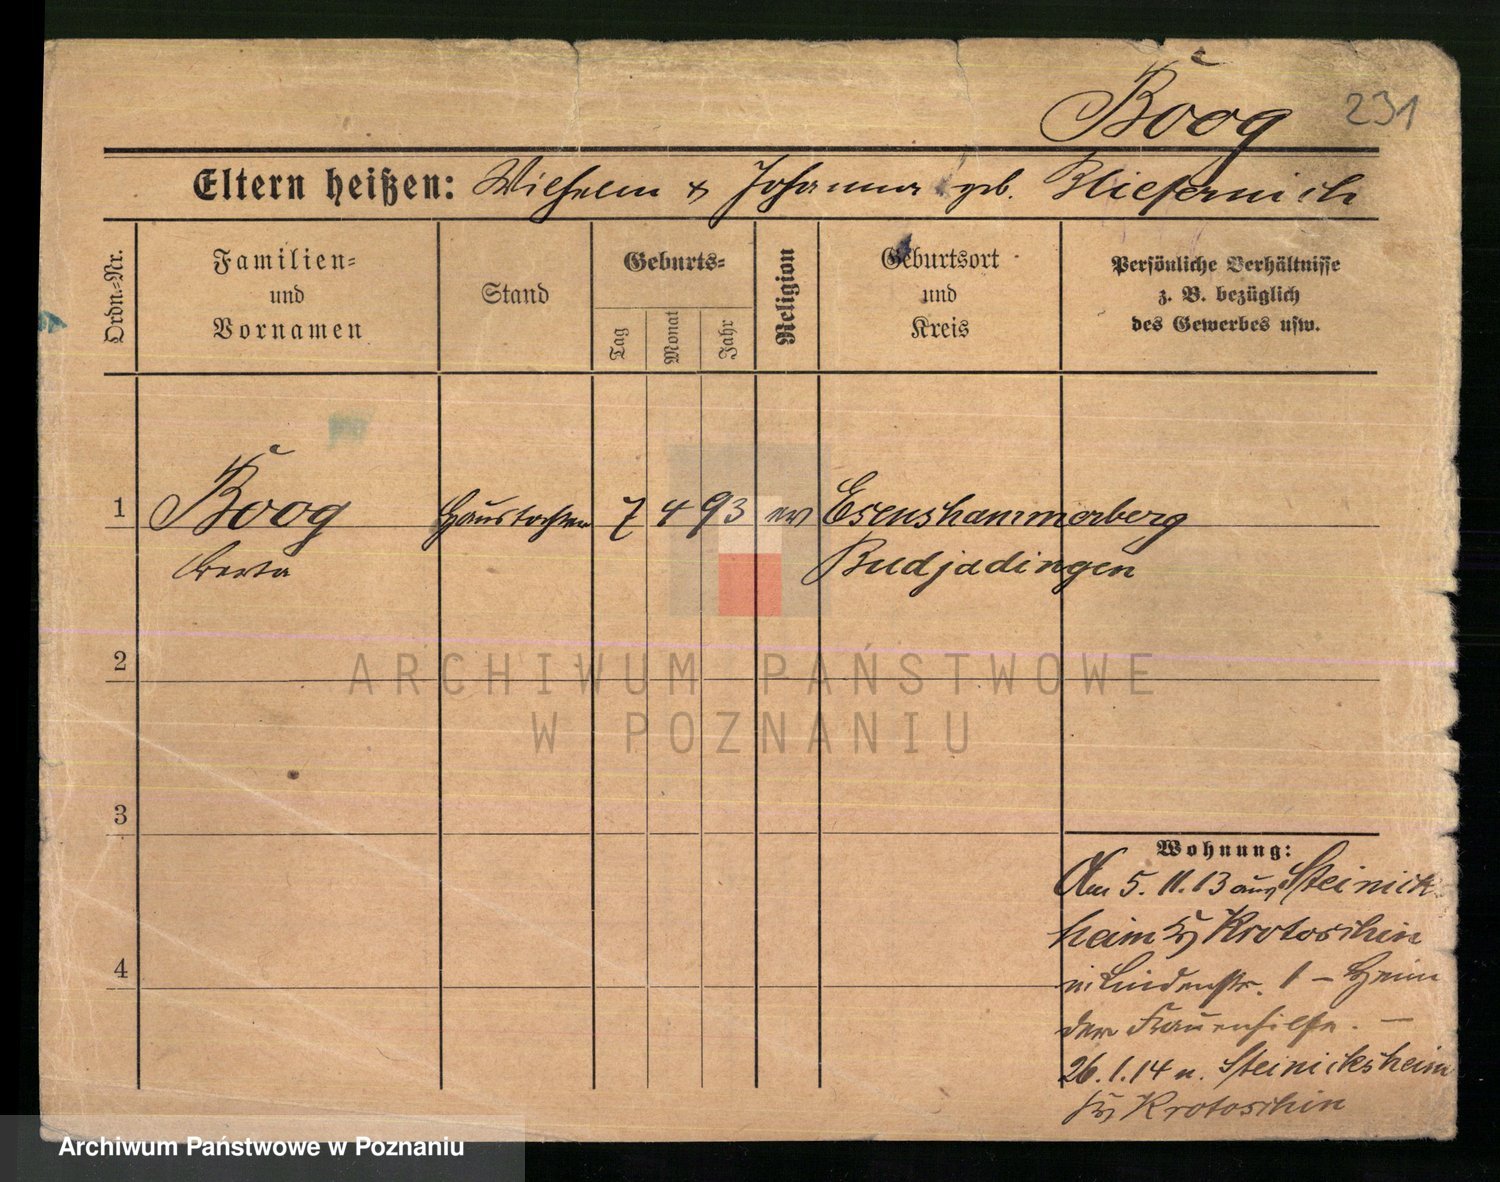 Boog 231
Eltern heißen: Wilhelm & Johanna geb.
Ordn.-Nr.
Familien-
und
Vornamen
Stand
Geburts-
Tag
Monat
Jahr
Religion
Geburtsort
und
Kreis
Persönliche Verhältnisse
z. B. bezüglich
des Gewerbes usw.
1 Boog Haustochter 7 4 93 ev Esenshammerberg
Berta Budjadingen
2
ARCHIWUM PAŃSTWOWE
W POZNANIU
3
Wohnung:
Am 5. 11. 13 aus Steinick-
heim Kr Krotoschin
in Lindenstr. 1 – Heim
der Frauenhilfe. –
4
26.1.14 n. Steinicksheim
Kr Krotoschin
Archiwum Państwowe w Poznaniu